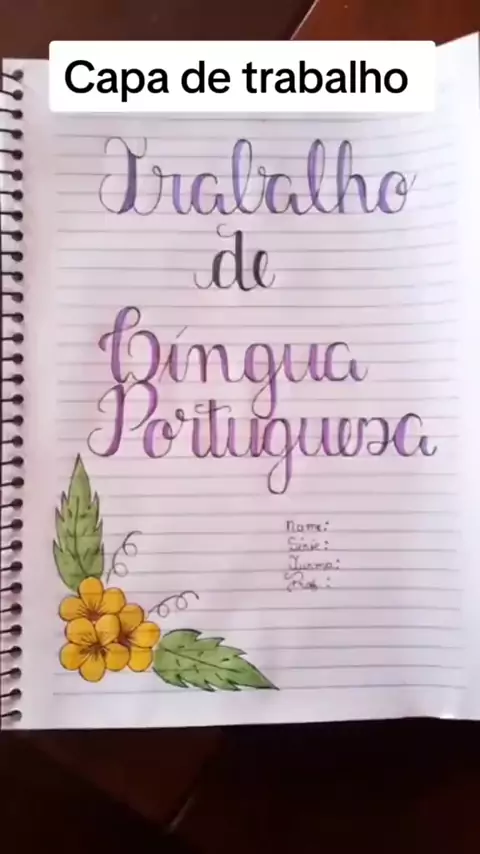 Capa de trabalho
Trabalho
de
Língua
Portuguesa
Nome:
Série:
Turma:
Prof.: